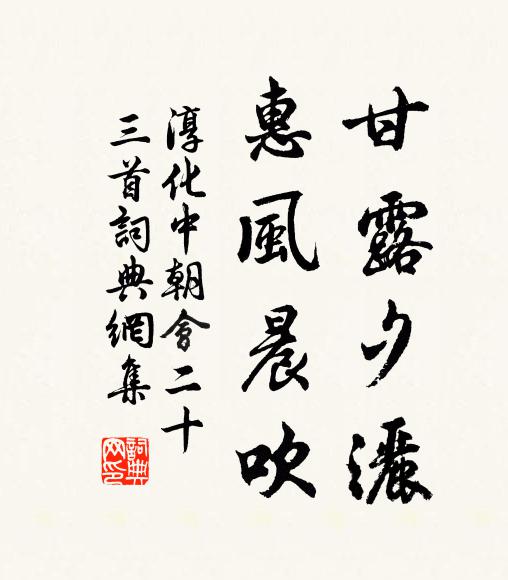 甘露夕灑
惠風晨吹
淳化中朝會二十
三首詞典網集
詞典
网印